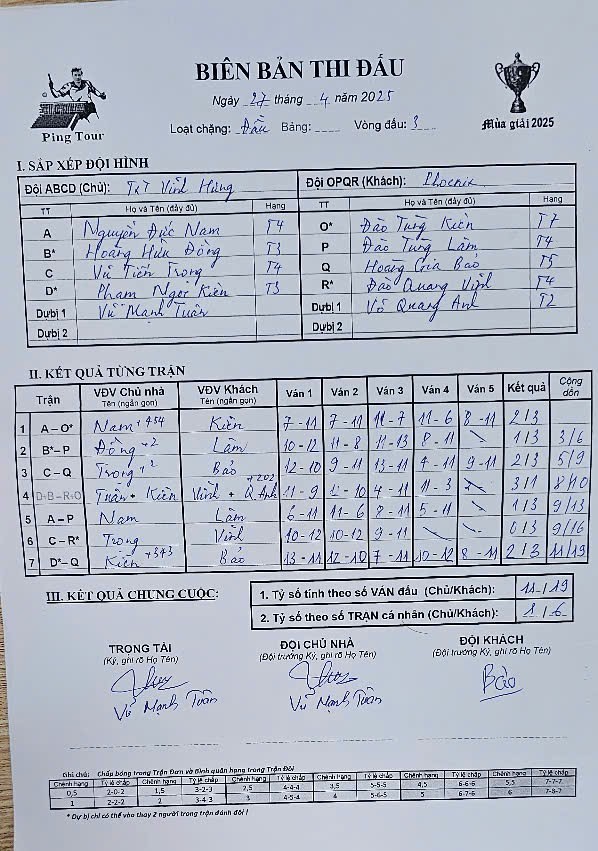 BIÊN BẢN THI ĐẤU
Ngày 27 tháng 4 năm 2025
Ping Tour
Loại chặng: Đấu Bảng: ___ Vòng đấu: 3
Mùa giải 2025
I. SẮP XẾP ĐỘI HÌNH
Đội ABCD (Chủ): T&T Vĩnh Hưng Đội OPQR (Khách): Phoenix
TT Họ và Tên (đầy đủ) Hạng TT Họ và Tên (đầy đủ) Hạng
A Nguyễn Đức Nam T4 O* Đào Tùng Kiên T7
B* Hoàng Hữu Đông T3 P Đào Tùng Lâm T4
C Vũ Tiến Trọng T4 Q Hoàng Gia Bảo T5
D* Phạm Ngọc Kiên T3 R* Đào Quang Vinh T4
Dự bị 1 Vũ Mạnh Tuân Dự bị 1 Võ Quang Anh T2
Dự bị 2 Dự bị 2
II. KẾT QUẢ TỪNG TRẬN
Trận VĐV Chủ nhà Tên (ngắn gọn) VĐV Khách Tên (ngắn gọn) Ván 1 Ván 2 Ván 3 Ván 4 Ván 5 Kết quả Cộng dồn
1 A–O* Nam +454 Kiên 7-11 7-11 11-7 11-6 8-11 2/3
2 B*–P Đông +2 Lâm 10-12 11-8 11-13 8-11 \ 1/3 3/6
3 C–Q Trọng +2 Bảo 12-10 9-11 13-11 7-11 9-11 2/3 5/9
4 D+B–R+O Tuân + Kiên Vinh + Q Anh +202 11-9 12-10 4-11 11-3 \ 3/1 8/10
5 A–P Nam Lâm 6-11 11-6 8-11 5-11 \ 1/3 9/13
6 C–R* Trọng Vinh 10-12 10-12 9-11 \ \ 0/3 9/16
7 D*–Q Kiên +343 Bảo 13-11 12-10 7-11 10-12 8-11 2/3 11/19
III. KẾT QUẢ CHUNG CUỘC:
1. Tỷ số tính theo số VÁN đấu (Chủ/Khách): 11/19
2. Tỷ số theo số TRẬN cá nhân (Chủ/Khách): 1/6
TRỌNG TÀI ĐỘI CHỦ NHÀ ĐỘI KHÁCH
(Ký, ghi rõ Họ Tên) (Đội trưởng Ký, ghi rõ Họ Tên) (Đội trưởng Ký, ghi rõ Họ Tên)
Vũ Mạnh Tuân Vũ Mạnh Tuân Bảo
Ghi chú: Chấp bóng trong Trận Đơn và Bình quân hạng trong Trận Đôi
Chênh hạng Tỷ lệ chấp Chênh hạng Tỷ lệ chấp Chênh hạng Tỷ lệ chấp Chênh hạng Tỷ lệ chấp Chênh hạng Tỷ lệ chấp Chênh hạng Tỷ lệ chấp
0,5 2-0-2 1,5 3-2-3 2,5 4-4-4 3,5 5-5-5 4,5 6-6-6 5,5 7-7-7
1 2-2-2 2 3-4-3 3 4-5-4 4 5-6-5 5 6-7-6 6 7-8-7
* Dự bị chỉ có thể vào thay 2 người trong trận đánh đôi !